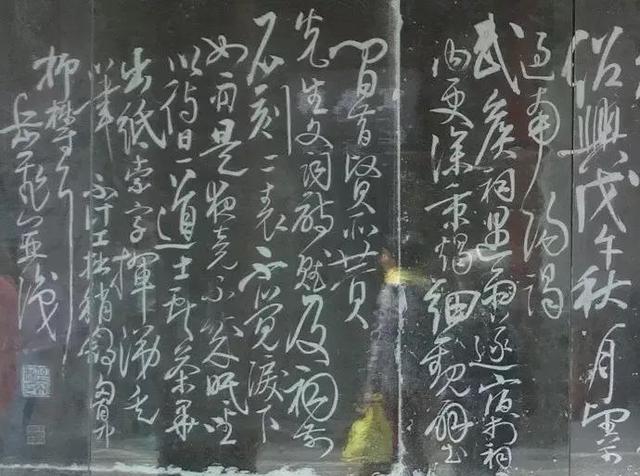 紹興戊午秋八月望前
過南陽謁
武侯祠遇雨遂宿於祠
内更深秉燭細觀壁
間昔賢所贊
先生文詞詩賦及祠前
石刻二表不覺淚下
如雨是夜竟不成眠坐
以待旦道士獻茶畢
出紙索字揮涕走
筆不計工拙稍舒胸中
抑鬱耳
岳飛並識